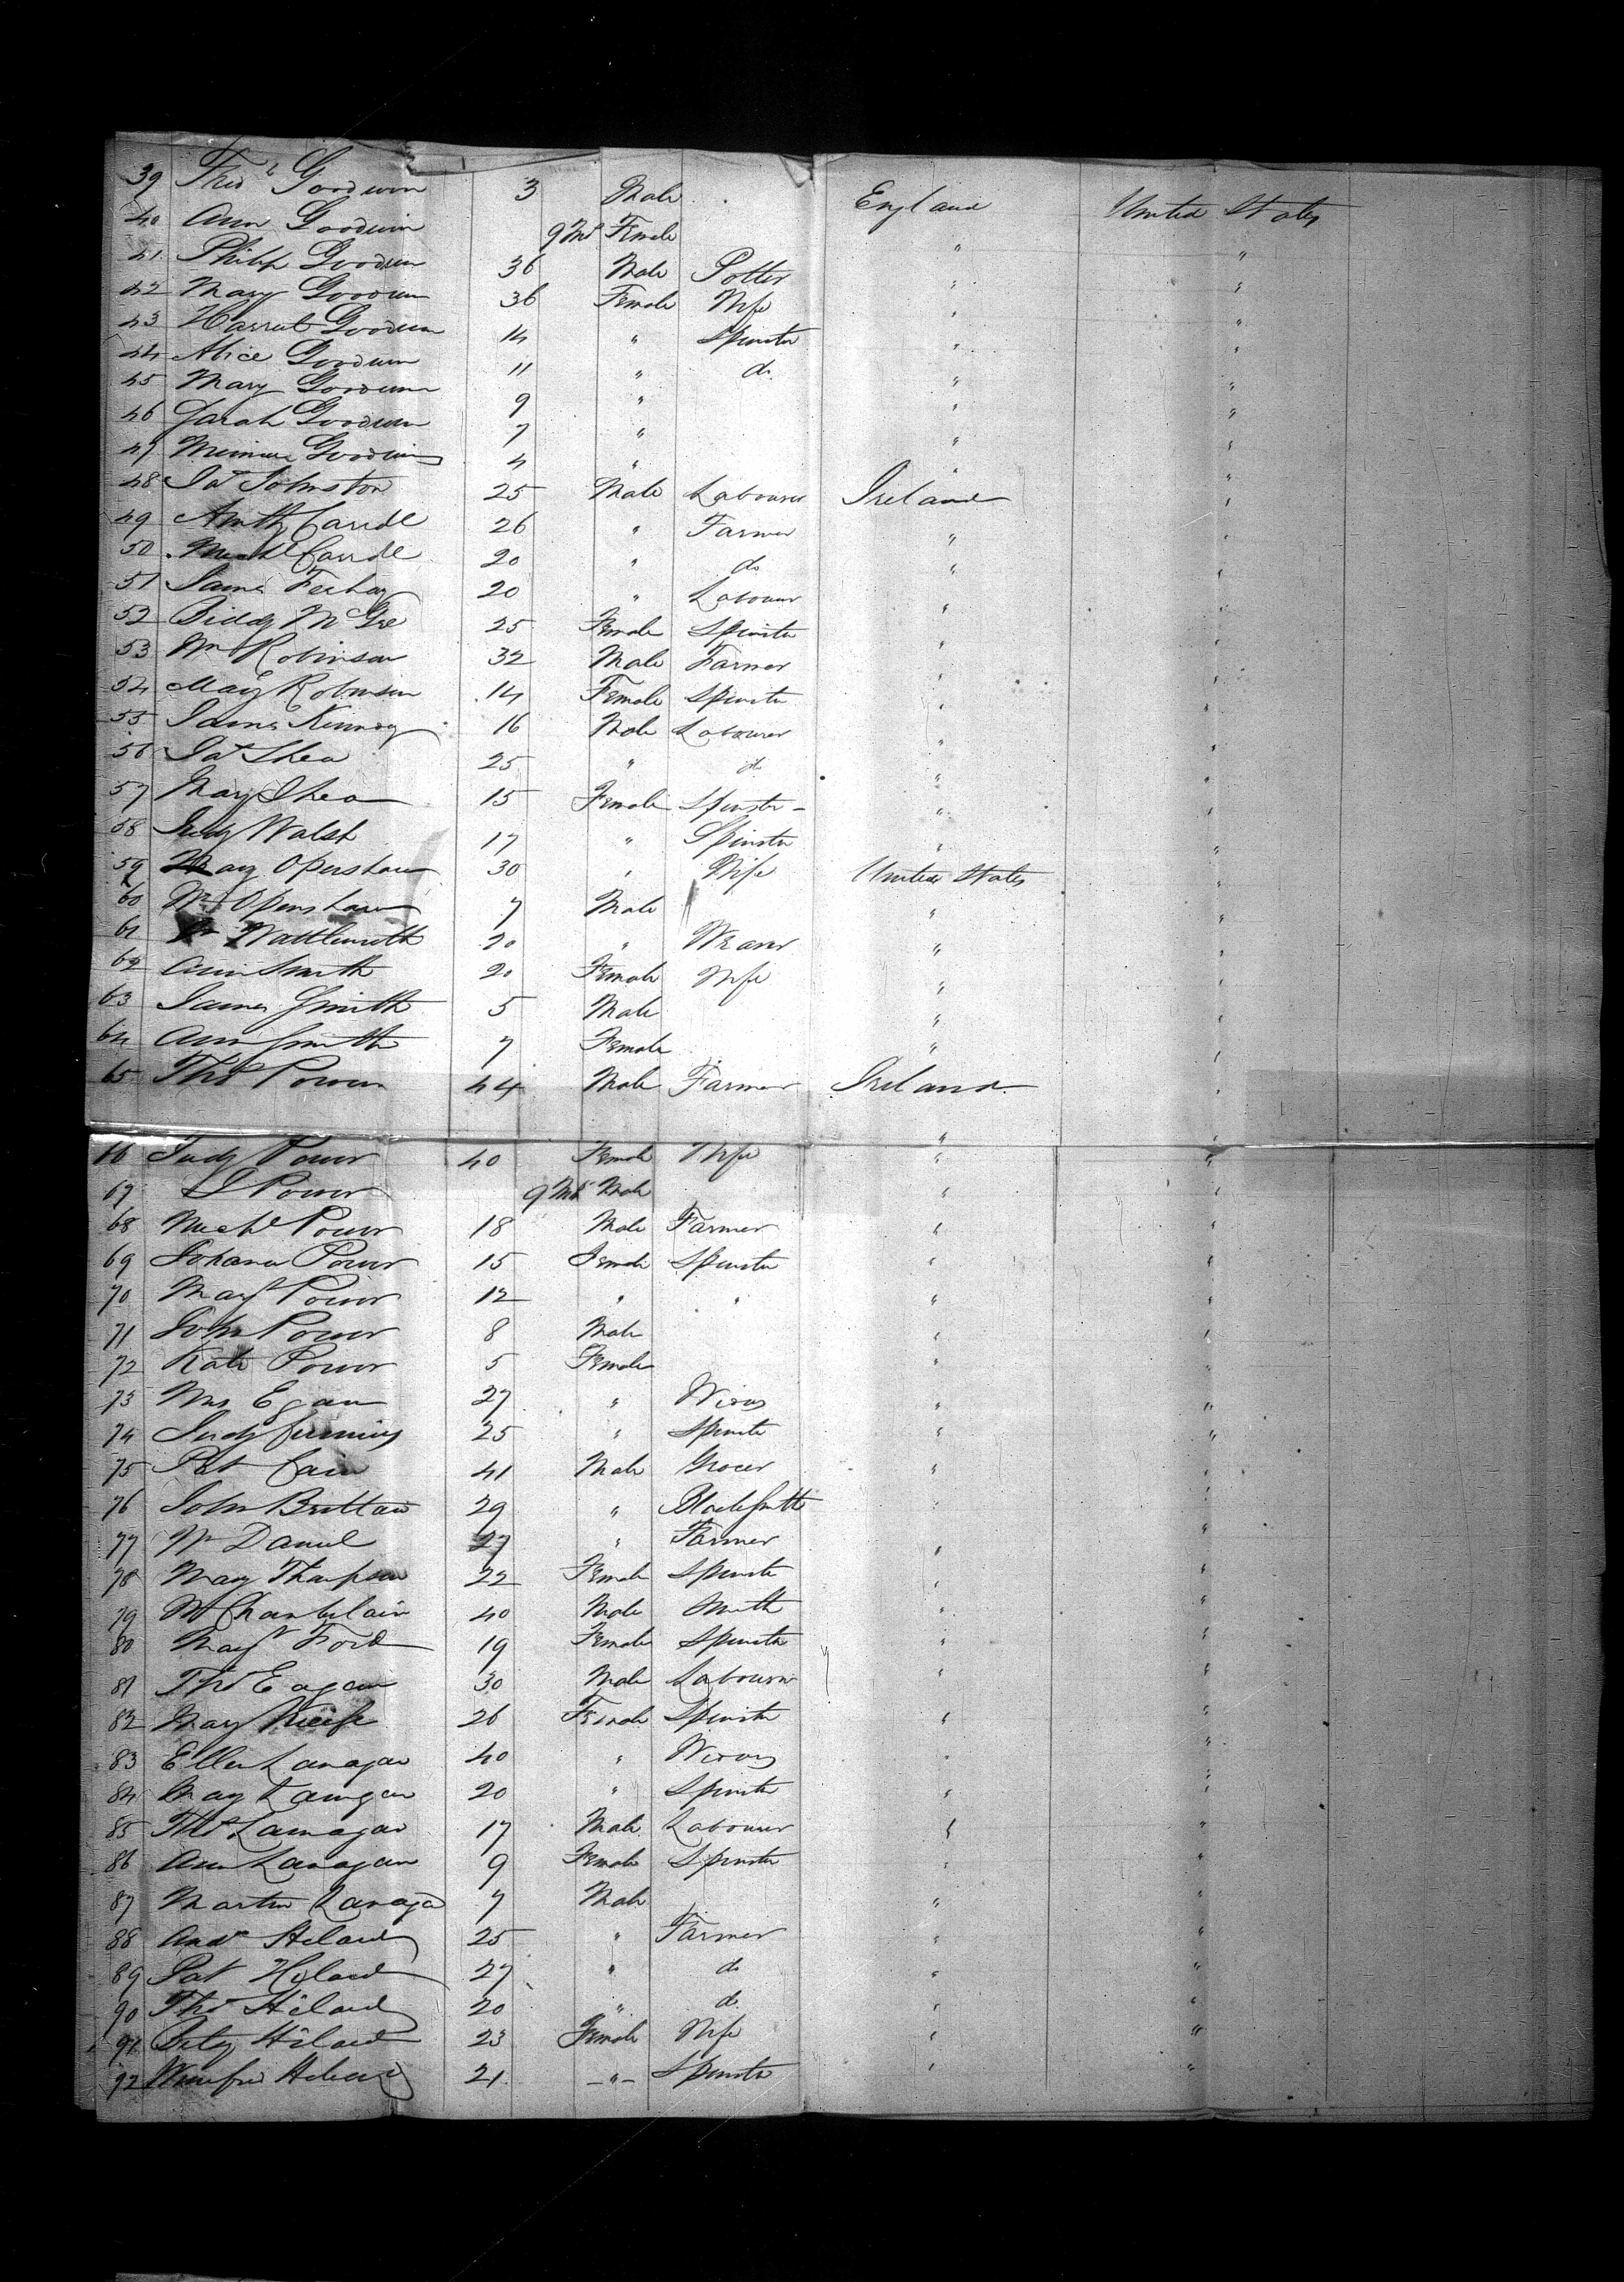 39 Thos Goodwin 3 Male England United States
40 Ann Goodwin 9 Ms Female " "
41 Philip Goodwin 36 Male Potter " "
42 Mary Goodwin 36 Female Wife " "
43 Harriet Goodwin 14 " Spinster " "
44 Alice Goodwin 11 " do " "
45 Mary Goodwin 9 " " "
46 Sarah Goodwin 7 " " "
47 Goodwin 4 " " "
48 Jas Johnston 25 Male Labourer Ireland "
49 Anthy Carrol 26 " Farmer " "
50 Michl Carrol 20 " do " "
51 James 20 " Labourer " "
52 Biddy McGee 25 Female Spinster " "
53 Wm Robinson 32 Male Farmer " "
54 Mary Robinson 14 Female Spinster " "
55 James Kennedy 16 Male Labourer " "
56 Jas Shea 25 " do " "
57 Mary Shea 15 Female Spinster " "
58 Judy Walsh 17 " Spinster " "
59 Mary Openshaw 30 " Wife United States "
60 Wm Openshaw 7 Male " "
61 20 " Weaver " "
62 Ann Smith 20 Female Wife " "
63 James Smith 5 Male " "
64 Ann Smith 7 Female " "
65 Thos Power 44 Male Farmer Ireland "
66 Judy Power 40 Female Wife " "
67 Power 9 Ms Male " "
68 Michl Power 18 Male Farmer " "
69 Johana Power 15 Female Spinster " "
70 Margt Power 12 " " " "
71 John Power 8 Male " "
72 Kate Power 5 Female " "
73 Mrs Egan 27 " Widow " "
74 Judy 25 " Spinster " "
75 Pat Cain 41 Male Grocer " "
76 John Brittain 29 " Blacksmith " "
77 Wm Daniel 27 " Farmer " "
78 Mary Thompson 22 Female Spinster " "
79 Chamberlain 40 Male Smith " "
80 Margt Ford 19 Female Spinster " "
81 Thos Eagan 30 Male Labourer " "
82 Mary Keefe 26 Female Spinster " "
83 Ellen Lanagan 40 " Widow " "
84 Mary Lanigan 20 " Spinster " "
85 Thos Lanagan 17 Male Labourer " "
86 Ann Lanagan 9 Female Spinster " "
87 Martin Lanaga 7 Male " "
88 Andw 25 " Farmer " "
89 Pat 27 " do " "
90 Thos 20 " do " "
91 23 Female Wife " "
92 21 " Spinster " "